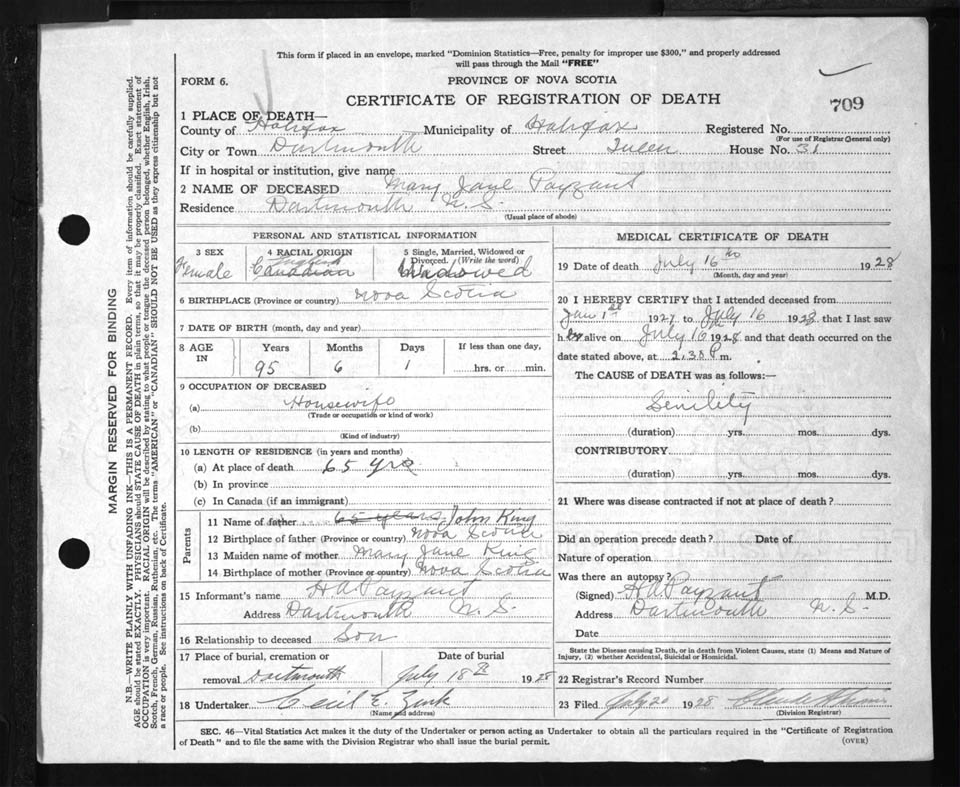 This form if placed in an envelope, marked "Dominion Statistics—Free, penalty for improper use $300," and properly addressed
will pass through the Mail "FREE"
FORM 6.
PROVINCE OF NOVA SCOTIA
CERTIFICATE OF REGISTRATION OF DEATH
709
1 PLACE OF DEATH—
County of Halifax Municipality of Halifax Registered No.
(For use of Registrar General only)
City or Town Dartmouth Street Queen House No. 31
If in hospital or institution, give name
2 NAME OF DECEASED Mary Jane Payzant
Residence Dartmouth N. S.
(Usual place of abode)
PERSONAL AND STATISTICAL INFORMATION
3 SEX Female
4 RACIAL ORIGIN Canadian
5 Single, Married, Widowed or Divorced. (Write the word) Widowed
6 BIRTHPLACE (Province or country) Nova Scotia
7 DATE OF BIRTH (month, day and year)
8 AGE IN Years Months Days If less than one day,
95 6 1 hrs. or min.
9 OCCUPATION OF DECEASED
(a) Housewife
(Trade or occupation or kind of work)
(b)
(Kind of industry)
10 LENGTH OF RESIDENCE (in years and months)
(a) At place of death 65 yrs
(b) In province
(c) In Canada (if an immigrant)
Parents
11 Name of father 65 years John King
12 Birthplace of father (Province or country) Nova Scotia
13 Maiden name of mother Mary Jane King
14 Birthplace of mother (Province or country) Nova Scotia
15 Informant's name H A Payzant
Address Dartmouth N. S.
16 Relationship to deceased Son
17 Place of burial, cremation or Date of burial
removal Dartmouth July 18th 1928
18 Undertaker Cecil E. Zink
(Name and address)
MEDICAL CERTIFICATE OF DEATH
19 Date of death July 16th 1928
(Month, day and year)
20 I HEREBY CERTIFY that I attended deceased from
Jan 1st 1927 to July 16 1928 that I last saw
her alive on July 16th 1928 and that death occurred on the
date stated above, at 2.30 P m.
The CAUSE of DEATH was as follows:—
Senility
(duration) yrs. mos. dys.
CONTRIBUTORY
(duration) yrs. mos. dys.
21 Where was disease contracted if not at place of death?
Did an operation precede death? Date of
Nature of operation
Was there an autopsy?
(Signed) H A Payzant M.D.
Address Dartmouth N. S.
Date
State the Disease causing Death, or in death from Violent Causes, state (1) Means and Nature of
Injury, (2) whether Accidental, Suicidal or Homicidal.
22 Registrar's Record Number
23 Filed July 20 1928
(Division Registrar)
SEC. 46—Vital Statistics Act makes it the duty of the Undertaker or person acting as Undertaker to obtain all the particulars required in the "Certificate of Registration
of Death" and to file the same with the Division Registrar who shall issue the burial permit.
(OVER)
MARGIN RESERVED FOR BINDING
N.B.—WRITE PLAINLY WITH UNFADING INK—THIS IS A PERMANENT RECORD. Every item of information should be carefully supplied.
AGE should be stated EXACTLY. PHYSICIANS should STATE CAUSE OF DEATH in plain terms, so that it may be properly classified. Exact statement of
OCCUPATION is very important. RACIAL ORIGIN will be described by stating to what people or tongue the deceased person belonged, whether English, Irish,
Scotch, French, German, Russian, Ruthenian, etc. The terms "AMERICAN" or "CANADIAN" SHOULD NOT BE USED as they express citizenship but not
a race or people. See instructions on back of Certificate.